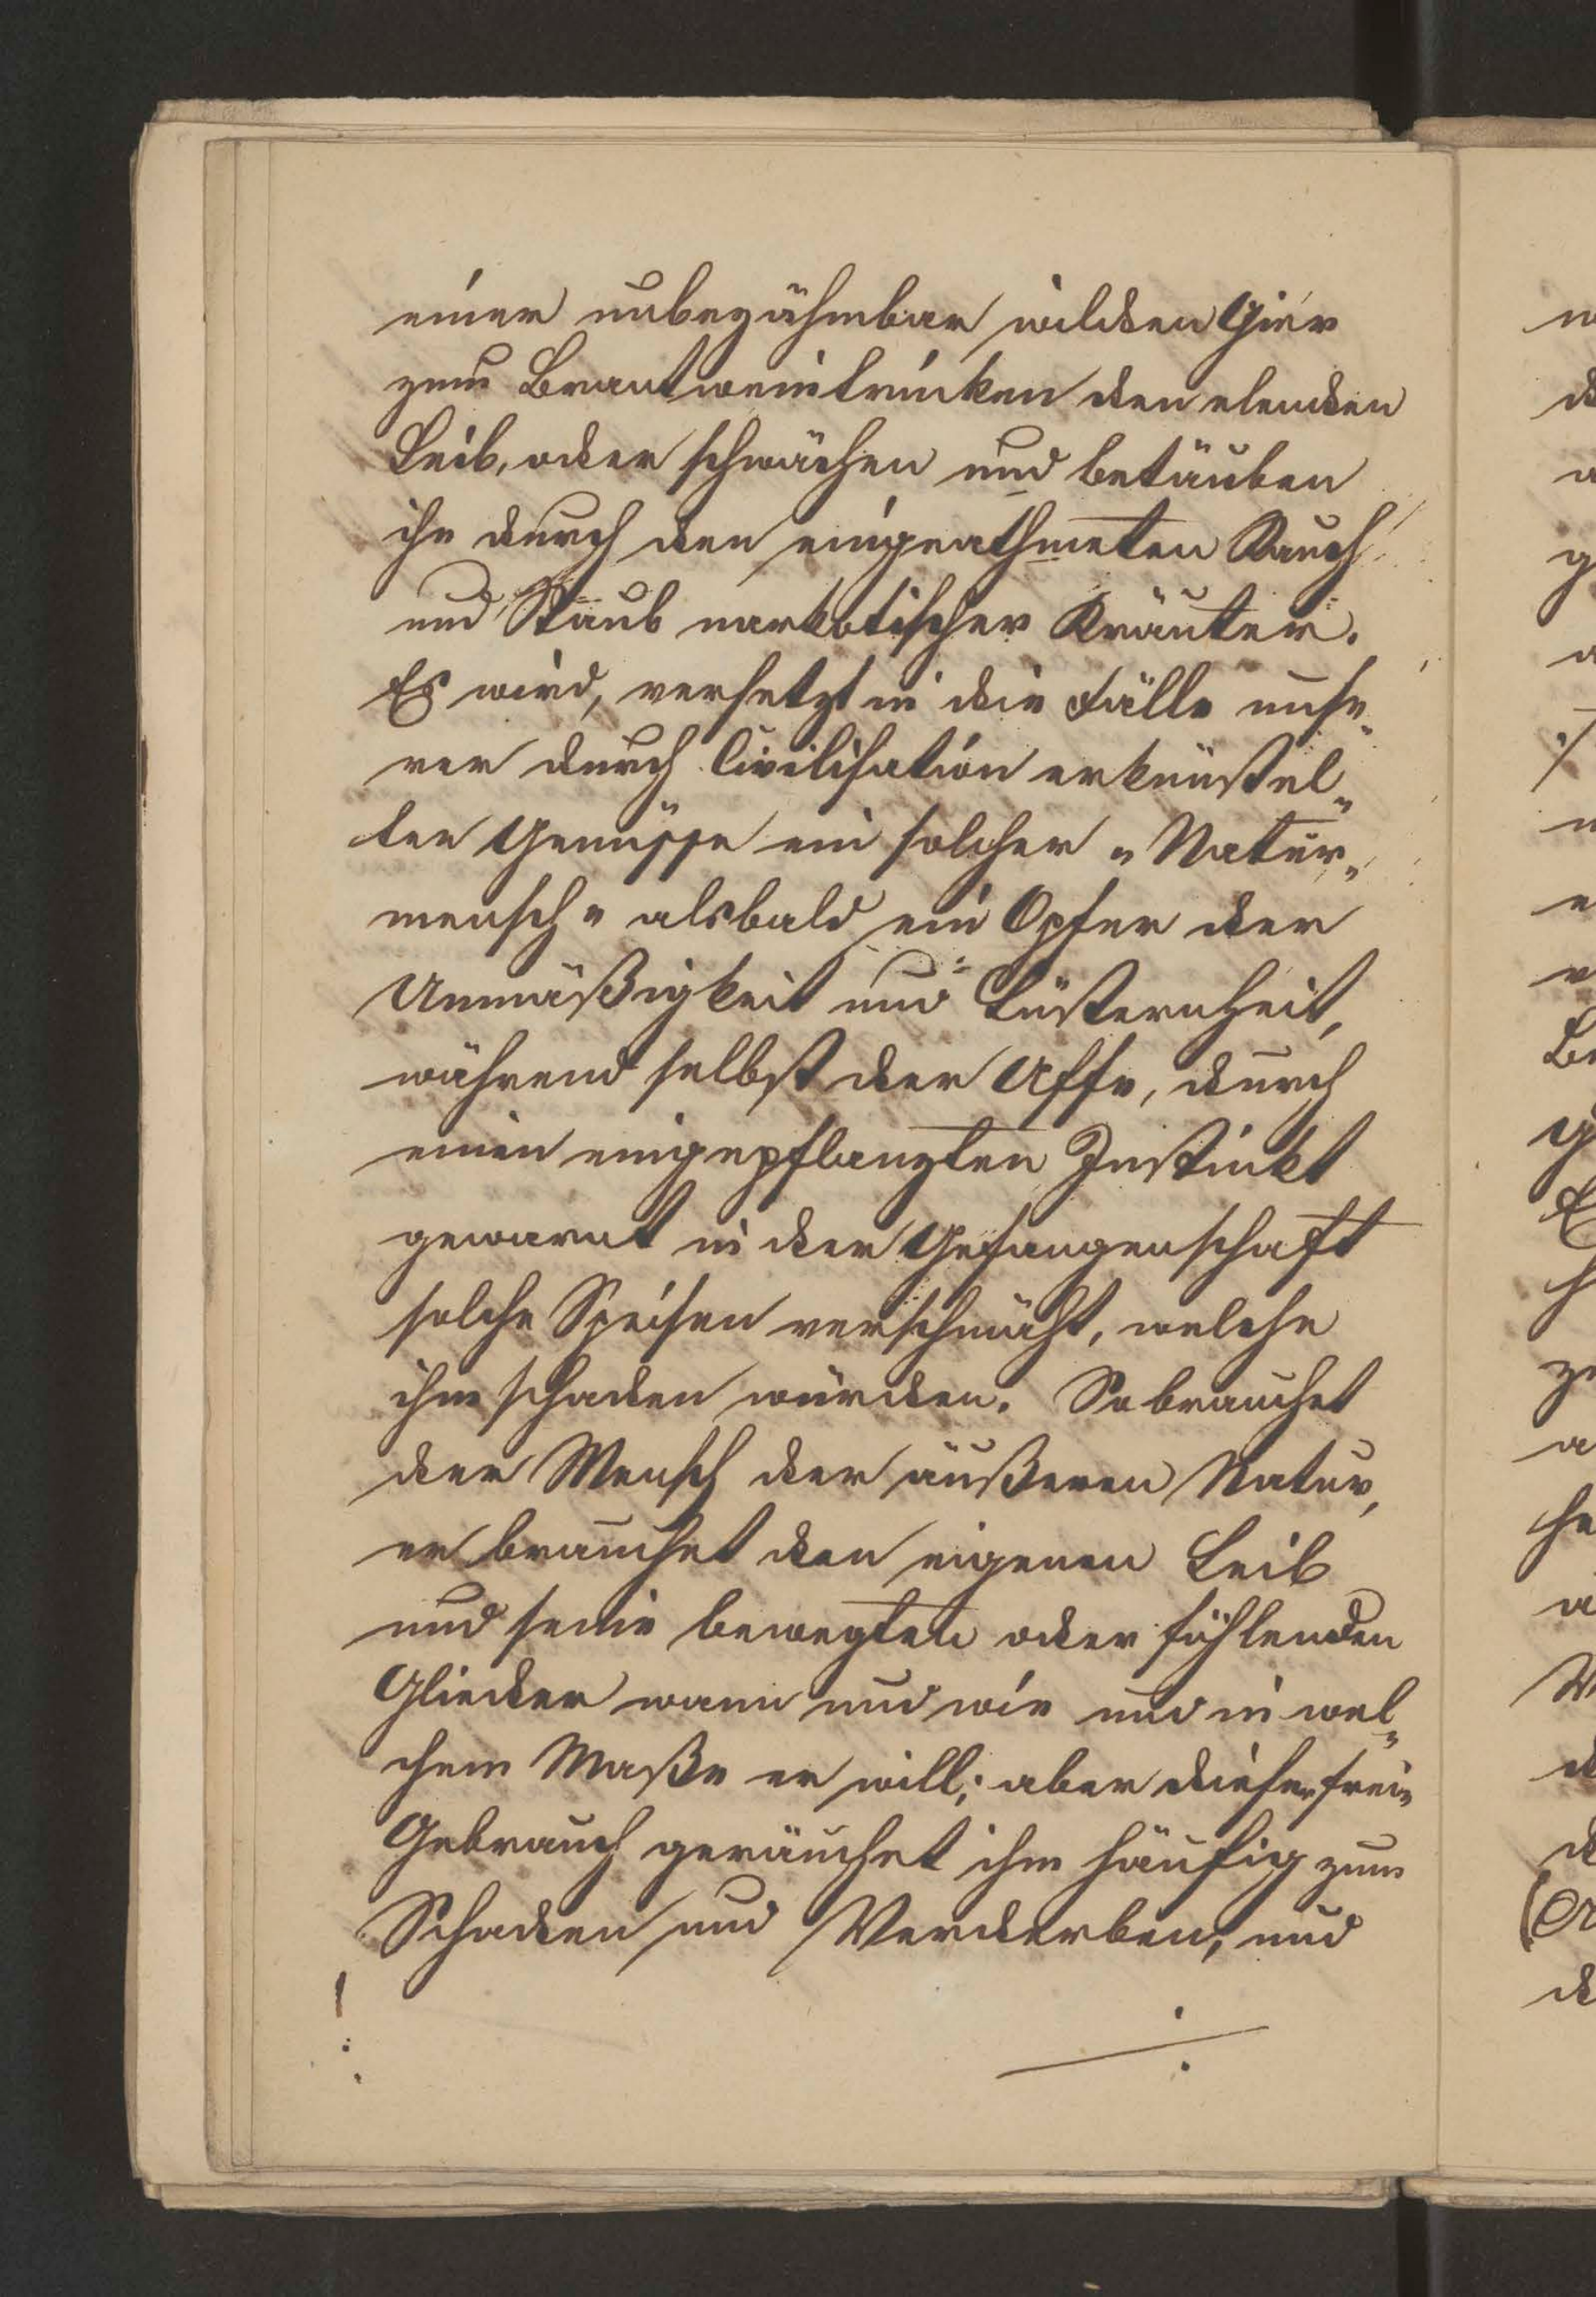 einer unbezähmbar wilden Gier
zum Brantweintrinken den elenden
Leib, oder schwächen und betäuben
ihn durch den eingeathmeten Rauch
und Staub narkotischer Kräuter.
Es wird, versetzt in die Fülle unse„
rer durch Civilisation erkünstel„
ten Genüsse ein solcher „Natur„
mensch" alsbald ein Opfer der
Unmäßigkeit und Lüsternheit,
während selbst der Affe, durch
einen eingepflanzten Instinkt
gewarnt in der Gefangenschaft
solche Speisen verschmäht, welche
ihm schaden würden. So brauchet
der Mensch der äußeren Natur,
er brauchet den eigenen Leib
und seine bewegten oder fühlenden
Glieder wann und wie und in wel„
chem Maße er will; aber dieser freie
Gebrauch geräuchet ihm häufig zum
Schaden und Verderben, und